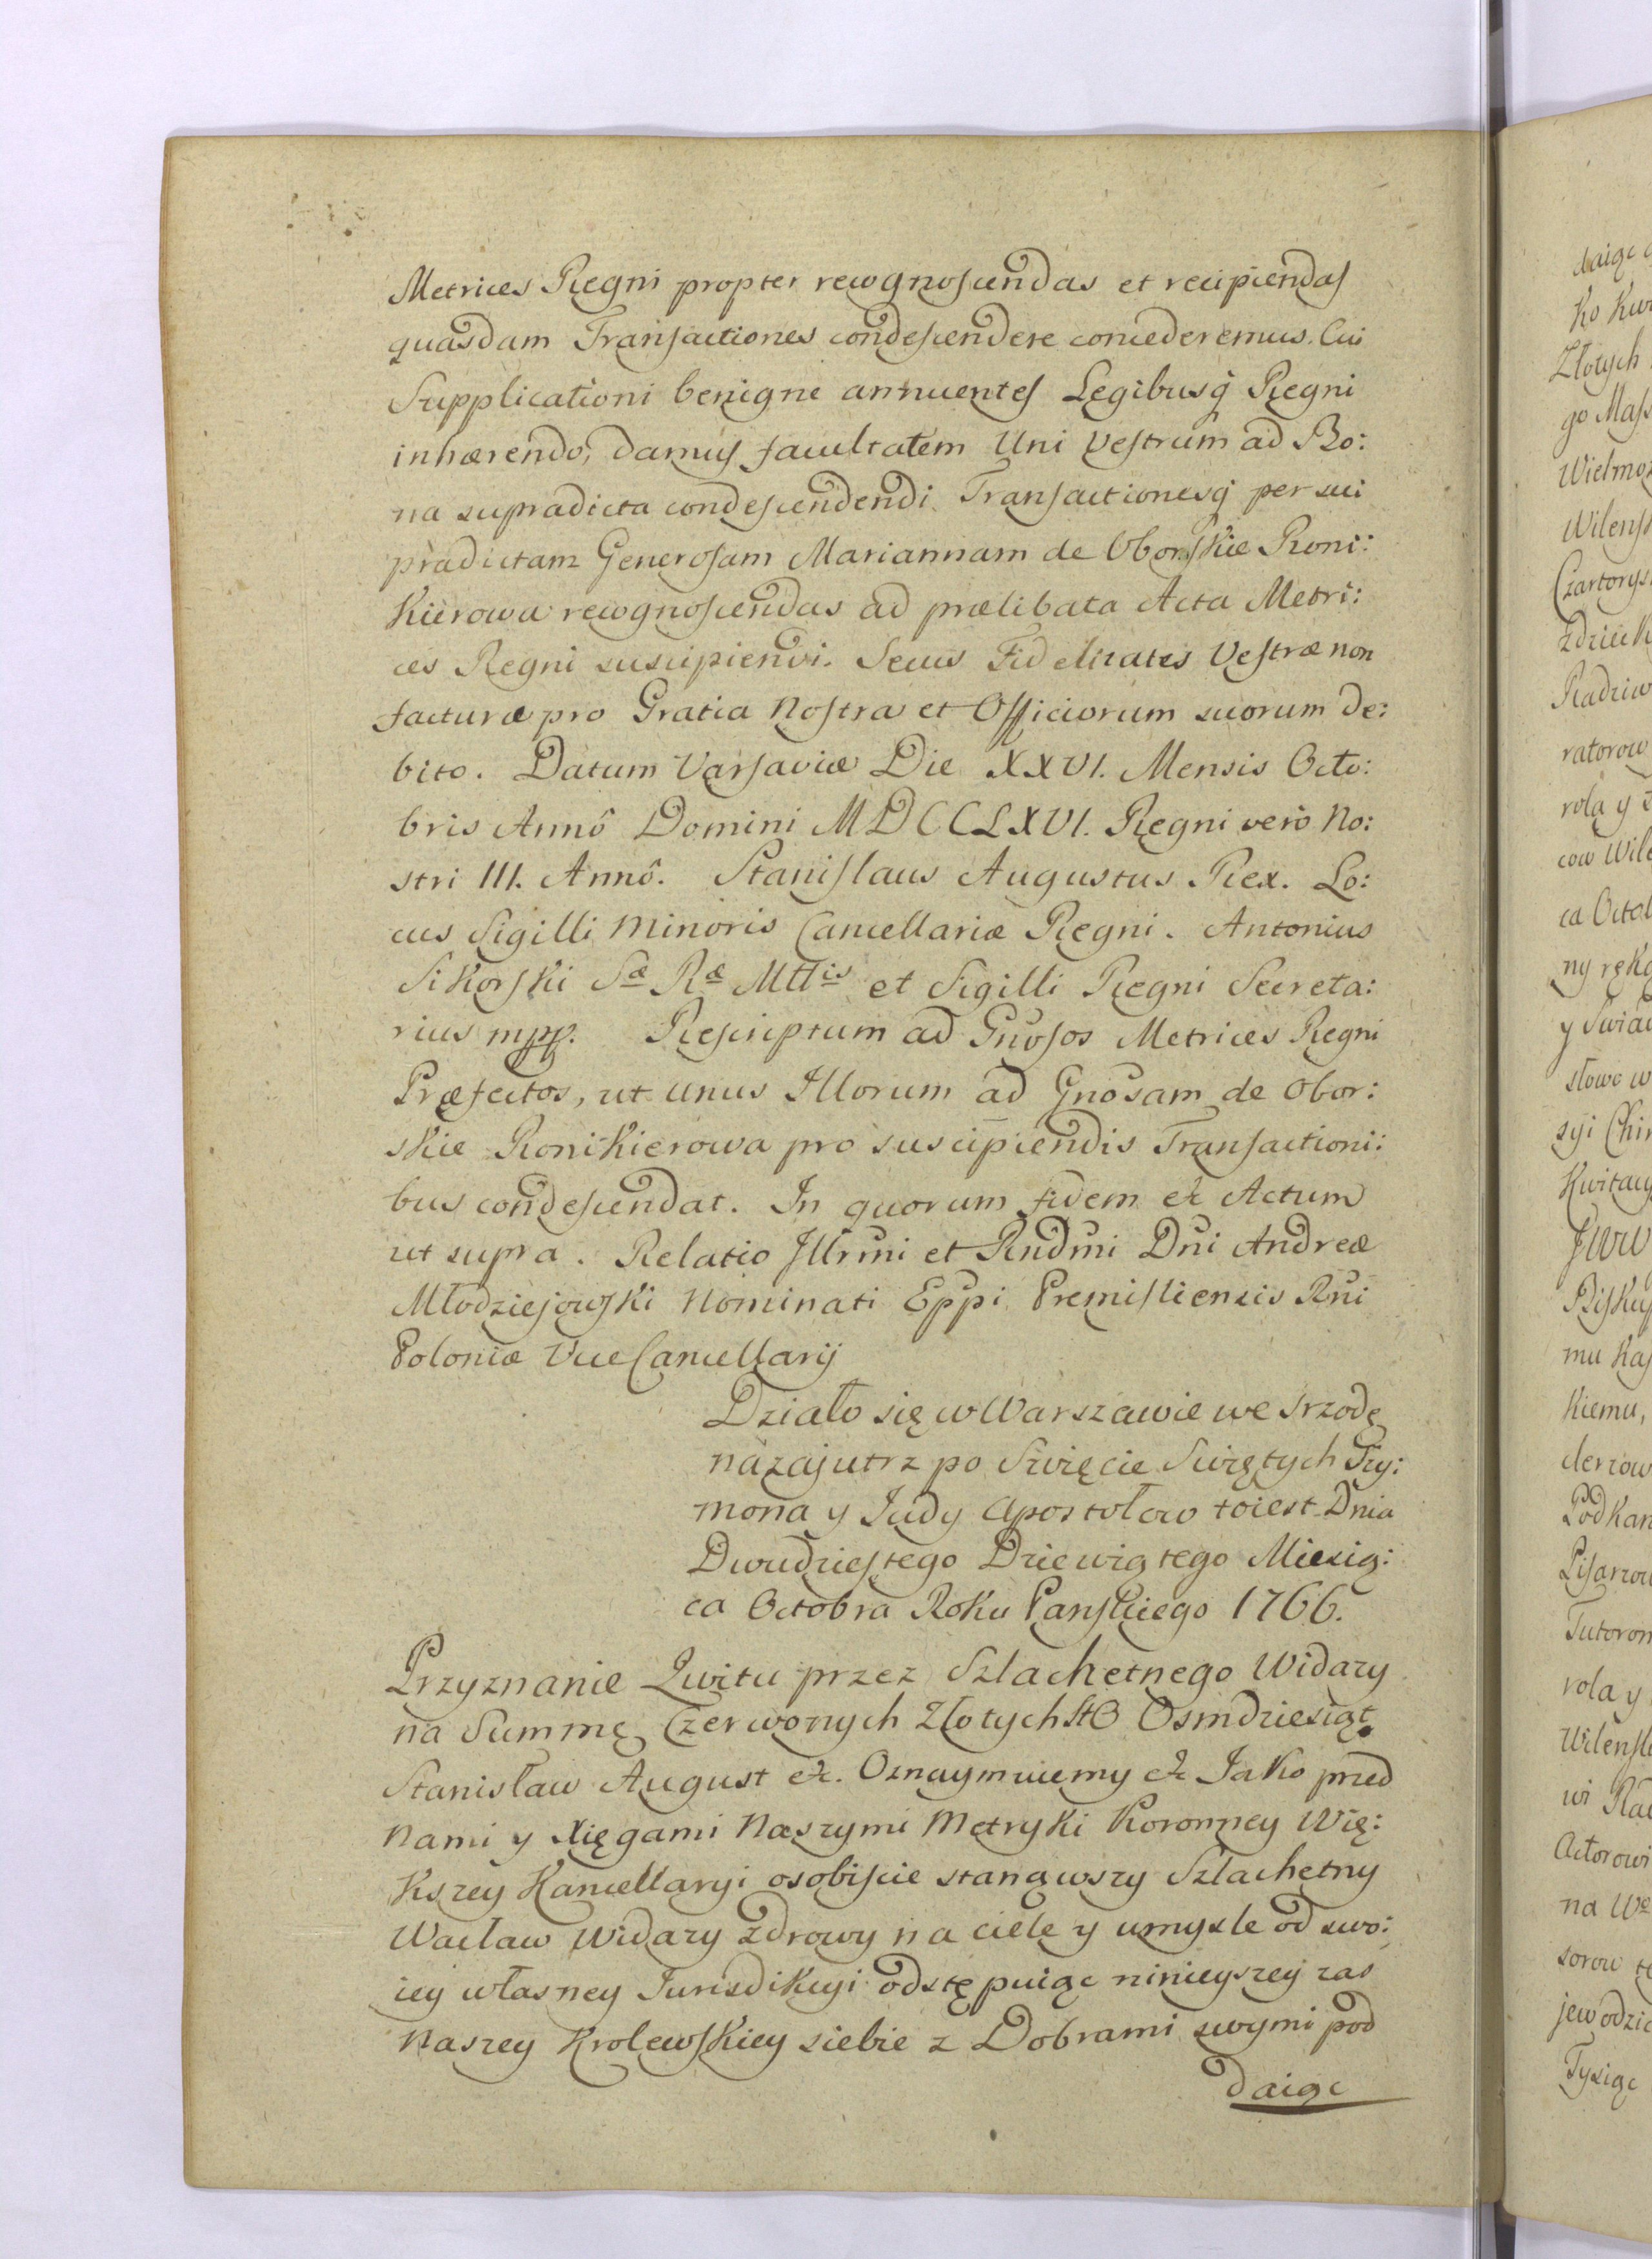 Metrices Regni propter recognoscendas et recipiendas
quasdam Transactiones condescendere concederemus. Cui
Supplicationi benigne annuentes Legibusq Regni
inhærendo, damus facultatem Uni Vestrum ad Bo:
na supradicta condescendendi Transactionesq per sui
prædictam Generosam Mariannam de Oborskie Roni:
kierowa recognoscendas ad prælibata Acta Metri:
ces Regni suscipiendi. Secus Fidelitates Vestræ non
facturæ pro Gratia Nostra et Officiorum suorum de:
bito. Datum Varsaviæ Die XXVI. Mensis Octo:
bris Annô Domini MDCCLXVI. Regni verò No:
stri III. Annô. Stanislaus Augustus Rex. Lo:
cus Sigilli Minoris Cancellariæ Regni. Antonius
Sikorski Sæ Ræ Mttis et Sigilli Regni Secreta:
rius mpp. Rescriptum ad Gnosos Metrices Regni
Præfectos, ut unus Illorum ad Gnosam de Obor:
skie Ronikierowa pro suscipiendis Transactioni:
bus condescendat. In quorum fidem &c Actum
ut supra. Relatio Illrmi et Rndmi Dni Andreæ
Młodziejowski Nominati Eppi Premisliensis Rni
Poloniæ ViceCancellarij
Działo się w Warszawie we srzodę
nazajutrz po Swięcie Swiętych Szy:
mona y Judy Apostołow toiest Dnia
Dwudziestego Dziewiątego Miesią:
ca Octobra Roku Panskiego 1766.
Przyznanie Kwitu przez Szlachetnego Widazy
na Summę Czerwonych Złotych Sto Osmdziesiąt
Stanisław August &c. Oznaymuiemy &c Jako przed
Nami y Xięgami Naszymi Metryki Koronney Wię:
kszey Kancellaryi osobiscie stanąwszy Szlachetny
Wacław Widazy zdrowy na ciele y umysle od swo:
iey własney Jurisdikcyi odstępuiąc ninieyszey zas
Naszey Krolewskiey siebie z Dobrami swymi pod
daiąc
daiąc
ko
Złotych
go
Wileńsk
Czartorys
Radziw
ratorow
rolą y
cow Wile
ca Octob
ny ręką
słowo w
syi
Kwitacy
JWW
Biskup
mu
kiemu,
Podkan
Pisarzow
Tutorom
rola y
Wilensk
wi Ra
Actorowi
na
sorow
jewodzic
Tysiąc